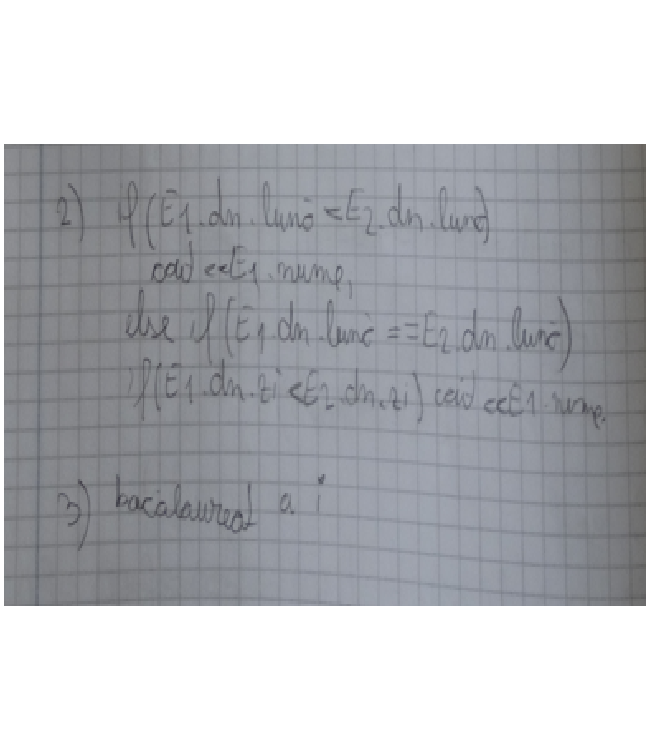 2) if(E1.dn.lună<E2.dn.lună)
cout<<E1.nume;
else if(E1.dn.lună==E2.dn.lună)
if(E1.dn.zi<E2.dn.zi) cout<<E1.nume;
3) bacalaureat a i